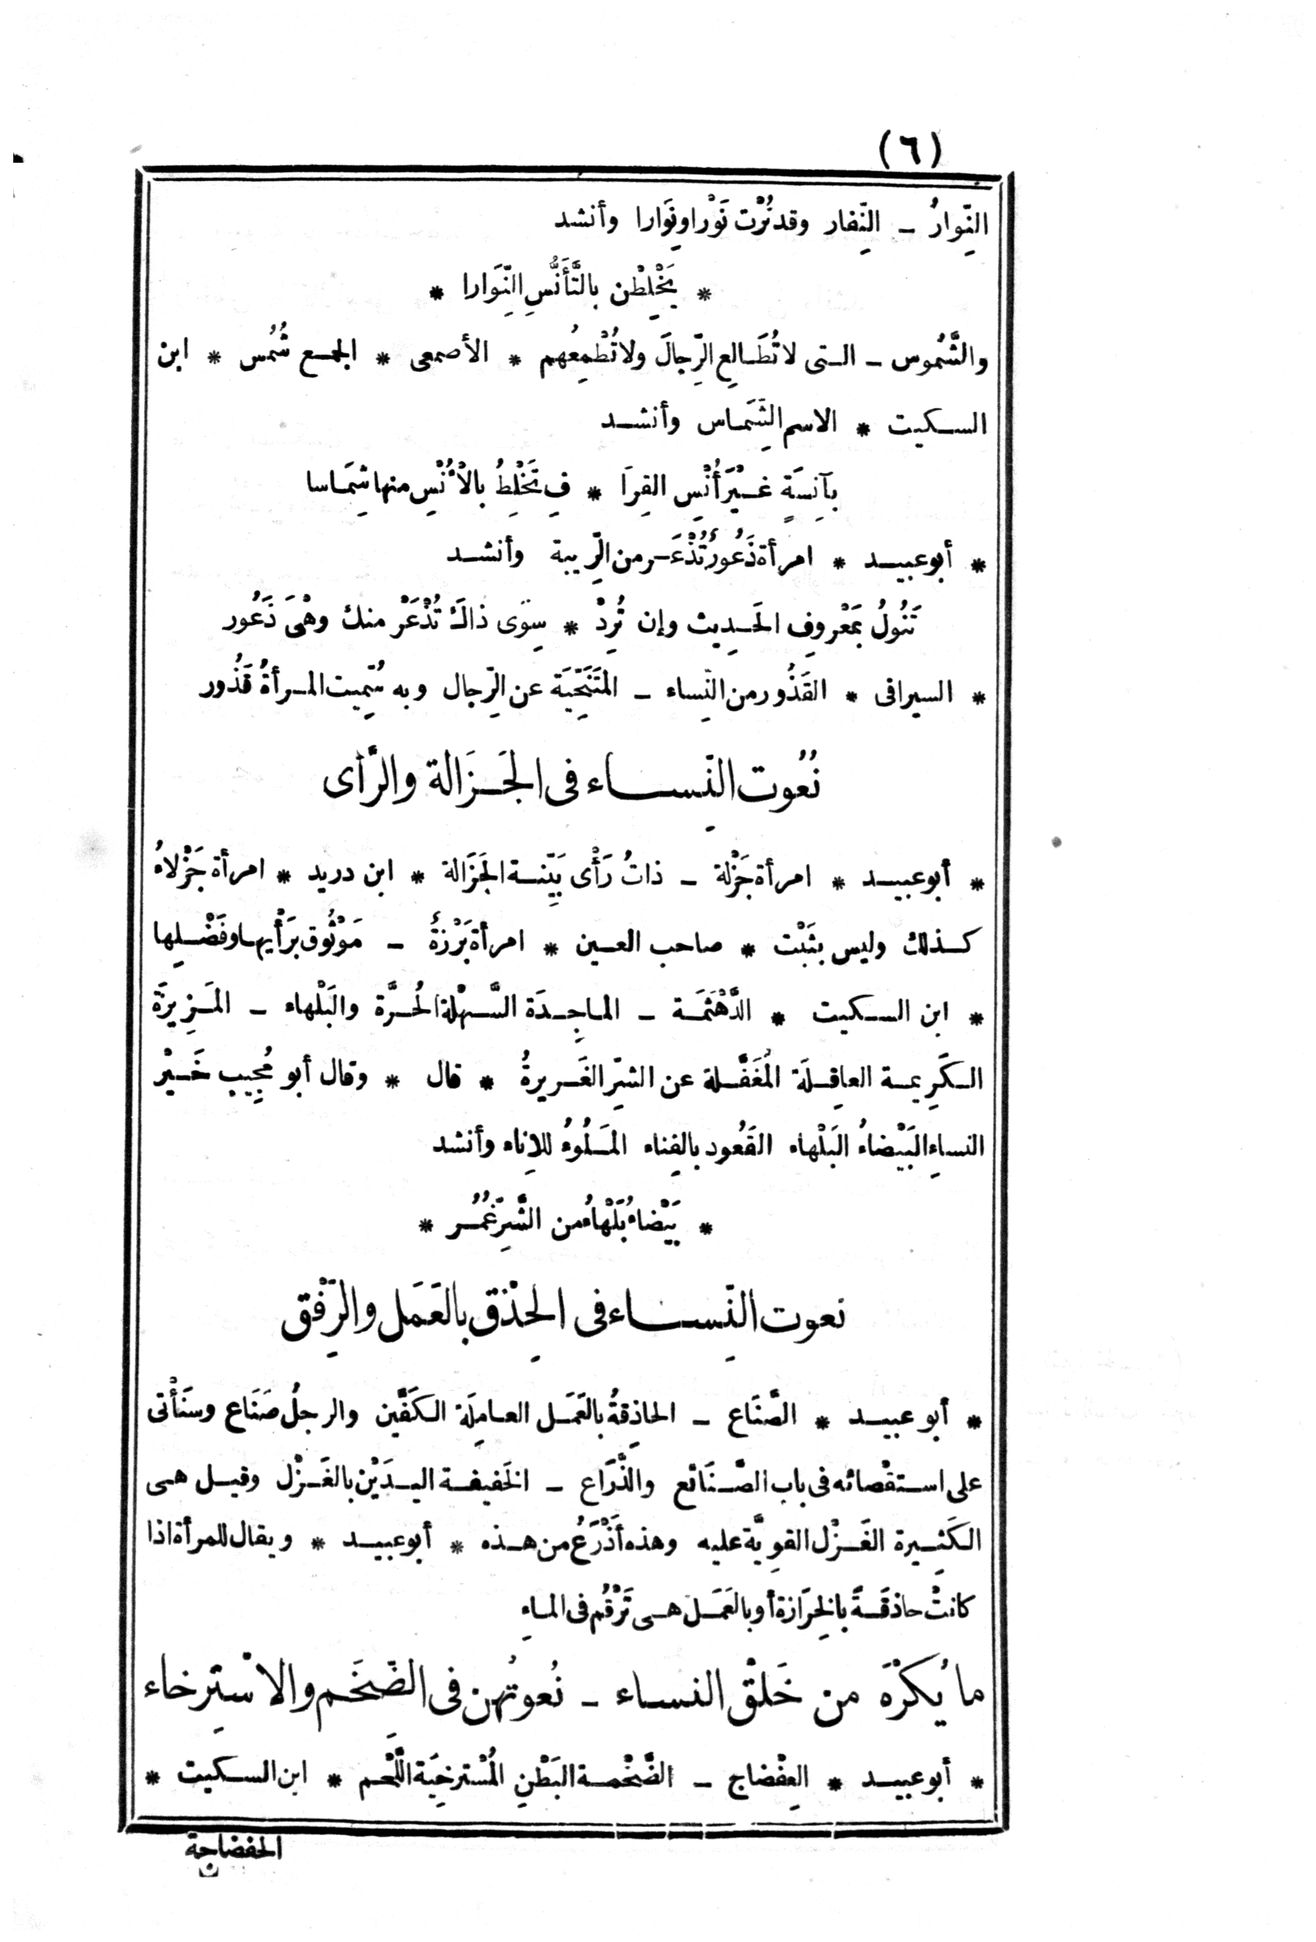 (٦)
النِّوارُ ـ النِّفار وقد نُرْت نَوْرا ونِوَارا وأنشد
* يَخْلِطْن بالتَّأَنُّسِ النِّوَارا *
والشَّمُوس ـ التى لا تُطَالِع الرِّجالَ ولا تُطْمِعُهم * الأصمعى * الجمع شُمُس * ابن
السكيت * الاسم الشِّمَاس وأنشد
بآنِسَةٍ غَيْرَ أُنْسِ القِرَا * فِ تَخْلِطُ بالْأُنْسِ منها شِمَاسا
* أبو عبيد * امرأة ذَعُور تُذْعَر من الرِّيبة وأنشد
تَنُولُ بمَعْروفِ الحَديث وإن تُرِدْ * سِوَى ذاكَ تُذْعَرْ منك وهْىَ ذَعُور
* السيرافى * القَذُور من النِّساء ـ المُتَنَحِّيَة عن الرِّجال وبه سُمِّيت المرأةُ قَذُور
نُعُوت النِّساء فى الجَزَالة والرَّأى
* أبو عبيد * امرأة جَزْلة ـ ذاتُ رَأْى بَيِّنة الجَزَالة * ابن دريد * امرأة جَزْلاءُ
كذلك وليس بثَبْت * صاحب العين * امرأة بَرْزةُ ـ مَوْثُوق برَأْيها وفَضْلِها
* ابن السكيت * الدَّهْثَمَة ـ الماجِدَة السَّهْلة الحُرَّة والبَلْهاء ـ المَزِيزَة
الكَرِيمة العاقِلَة المُغَفَّلة عن الشرِّ الغَرِيرةُ * قال * وقال أبو مُجِيب خَيْر
النساءِ البَيْضاءُ البَلْهاء القَعُود بالفِناء المَلُوءُ للاِناء وأنشد
* بَيْضاءُ بَلْهاءُ من الشَّرِّ غُمُر *
نعوت النِّساء فى الحِذْق بالعَمَل والرِّفْق
* أبو عبيد * الصَّنَاع ـ الحاذِقةُ بالعَمَل العامِلَة الكَفَّين والرجلُ صَنَاع وسنَأْتى
على استقْصائه فى باب الصَّنَائع والذَّرَاع ـ الخَفيفة اليدَيْن بالغَزْل وقيل هى
الكَثِيرة الغَزْل القويَّة عليه وهذه أَذْرَعُ من هذه * أبو عبيد * ويقال للمرأة اذا
كانتْ حاذقةً بالخِرَازة أو بالعَمَل هى تَرْقُم فى الماءِ
ما يُكْرَه من خَلْق النساء ـ نُعوتُهن فى الضِّخَم والاسْتِرخاء
* أبو عبيد * العِفْضاج ـ الضَّخْمة البَطْنِ المُسْترخِيَة اللَّحْم * ابن السكيت *
الحفضاجة